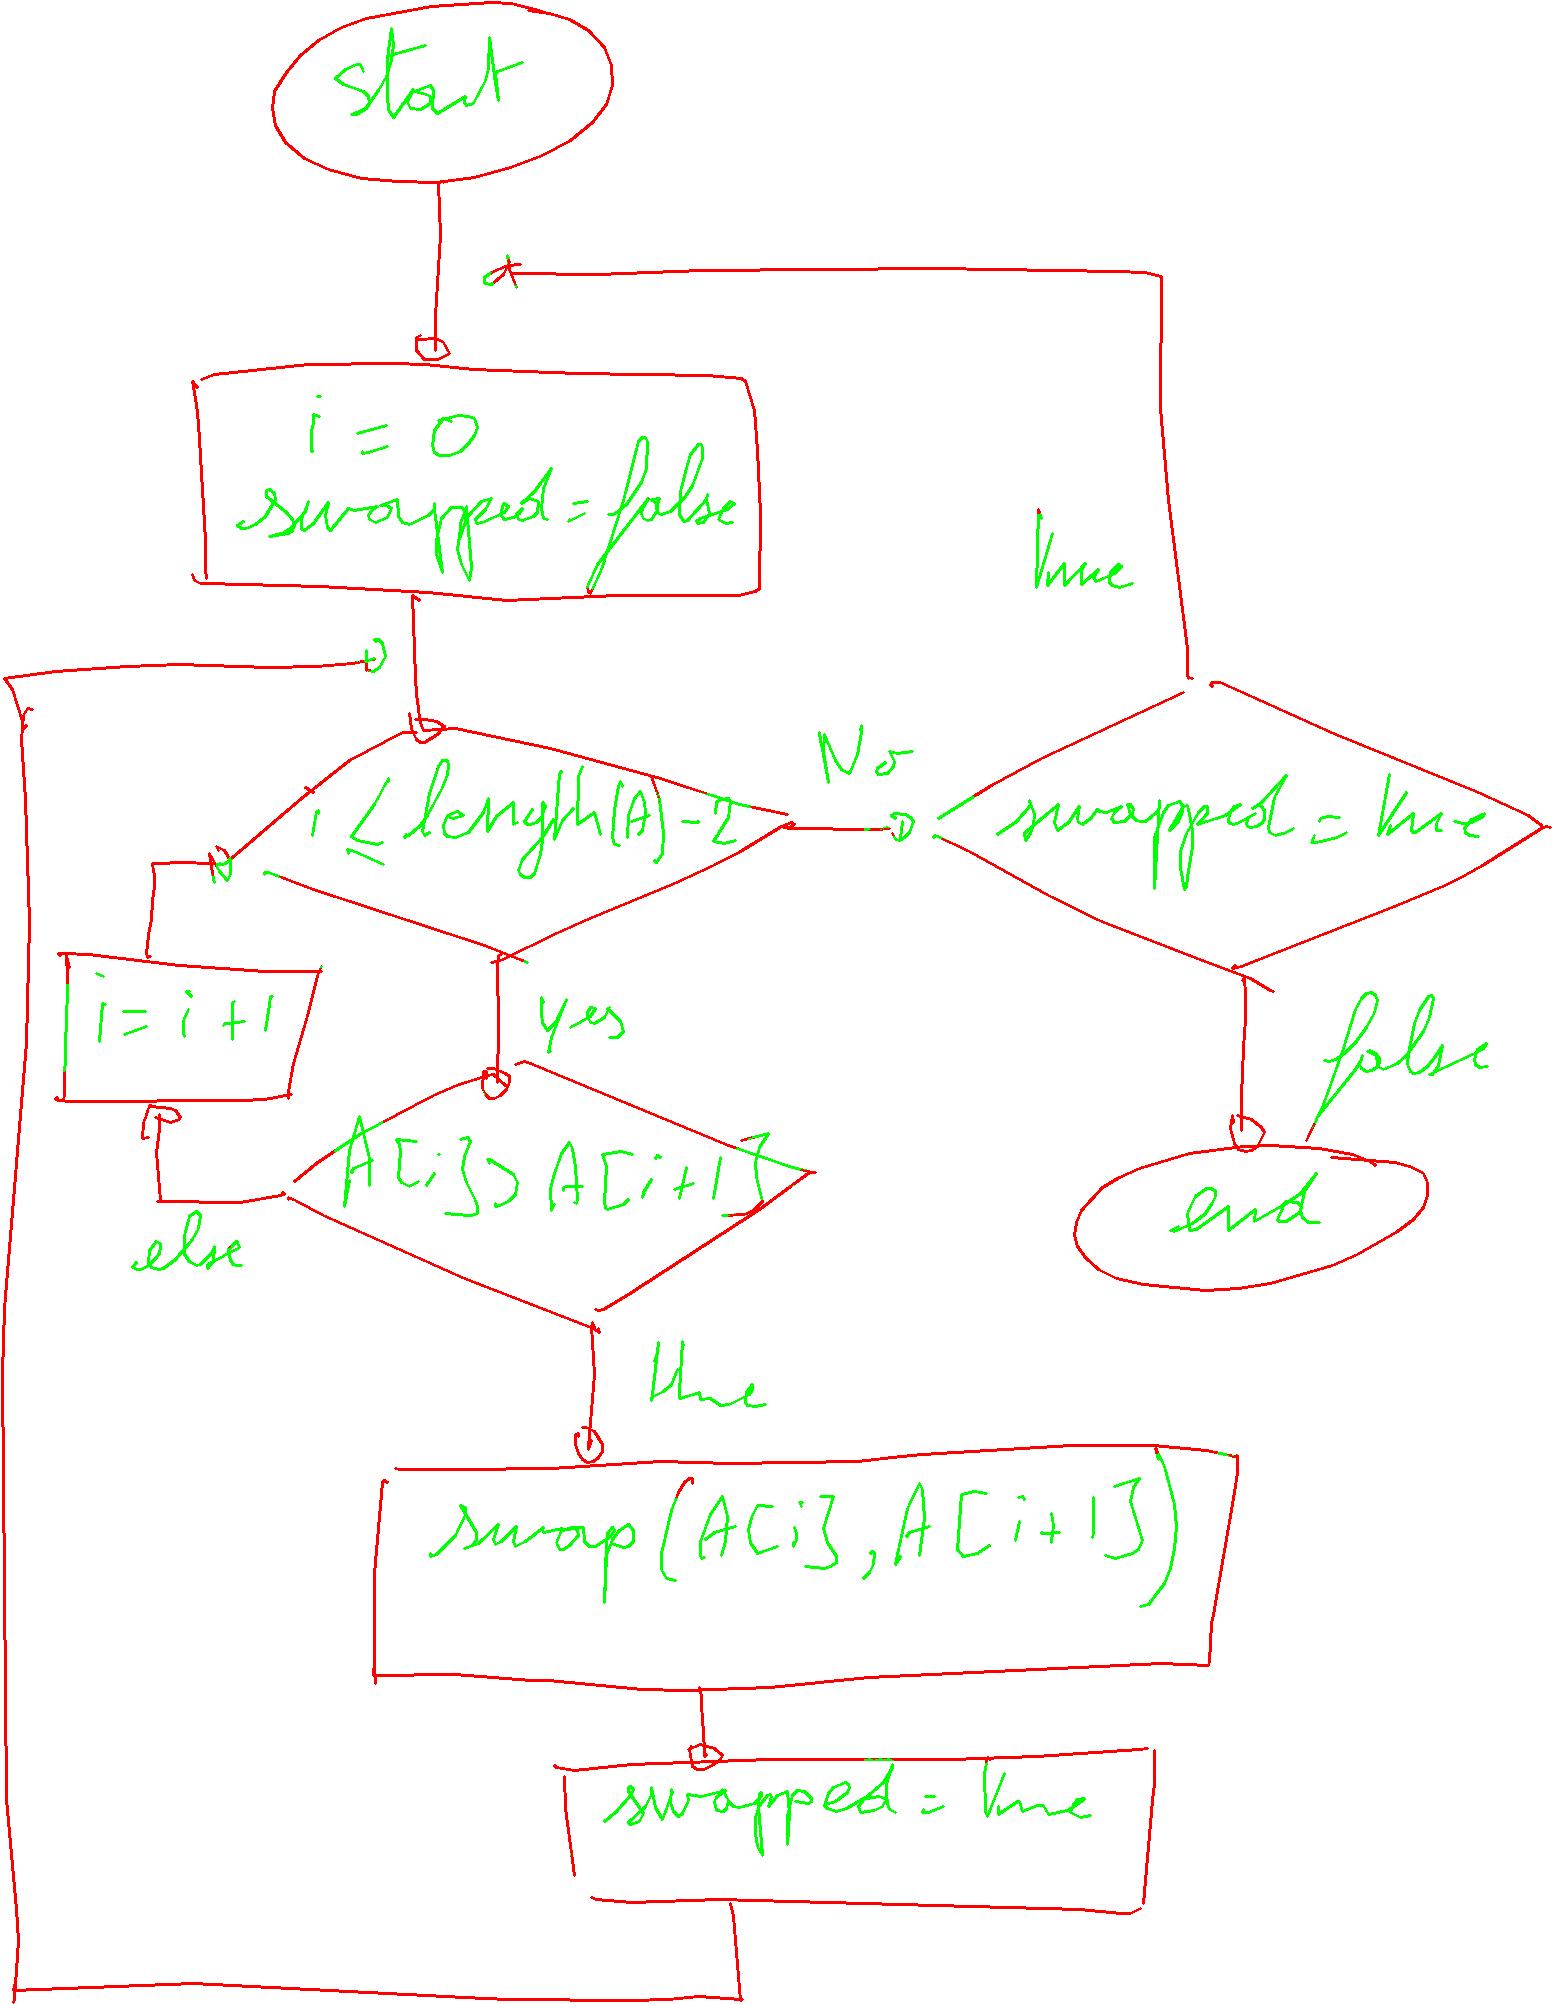 start
i = 0
swapped = false
true
i ≤ length(A) - 2
No
swapped = true
i = i + 1
yes
false
A[i] > A[i+1]
end
else
true
swap(A[i], A[i+1])
swapped = true